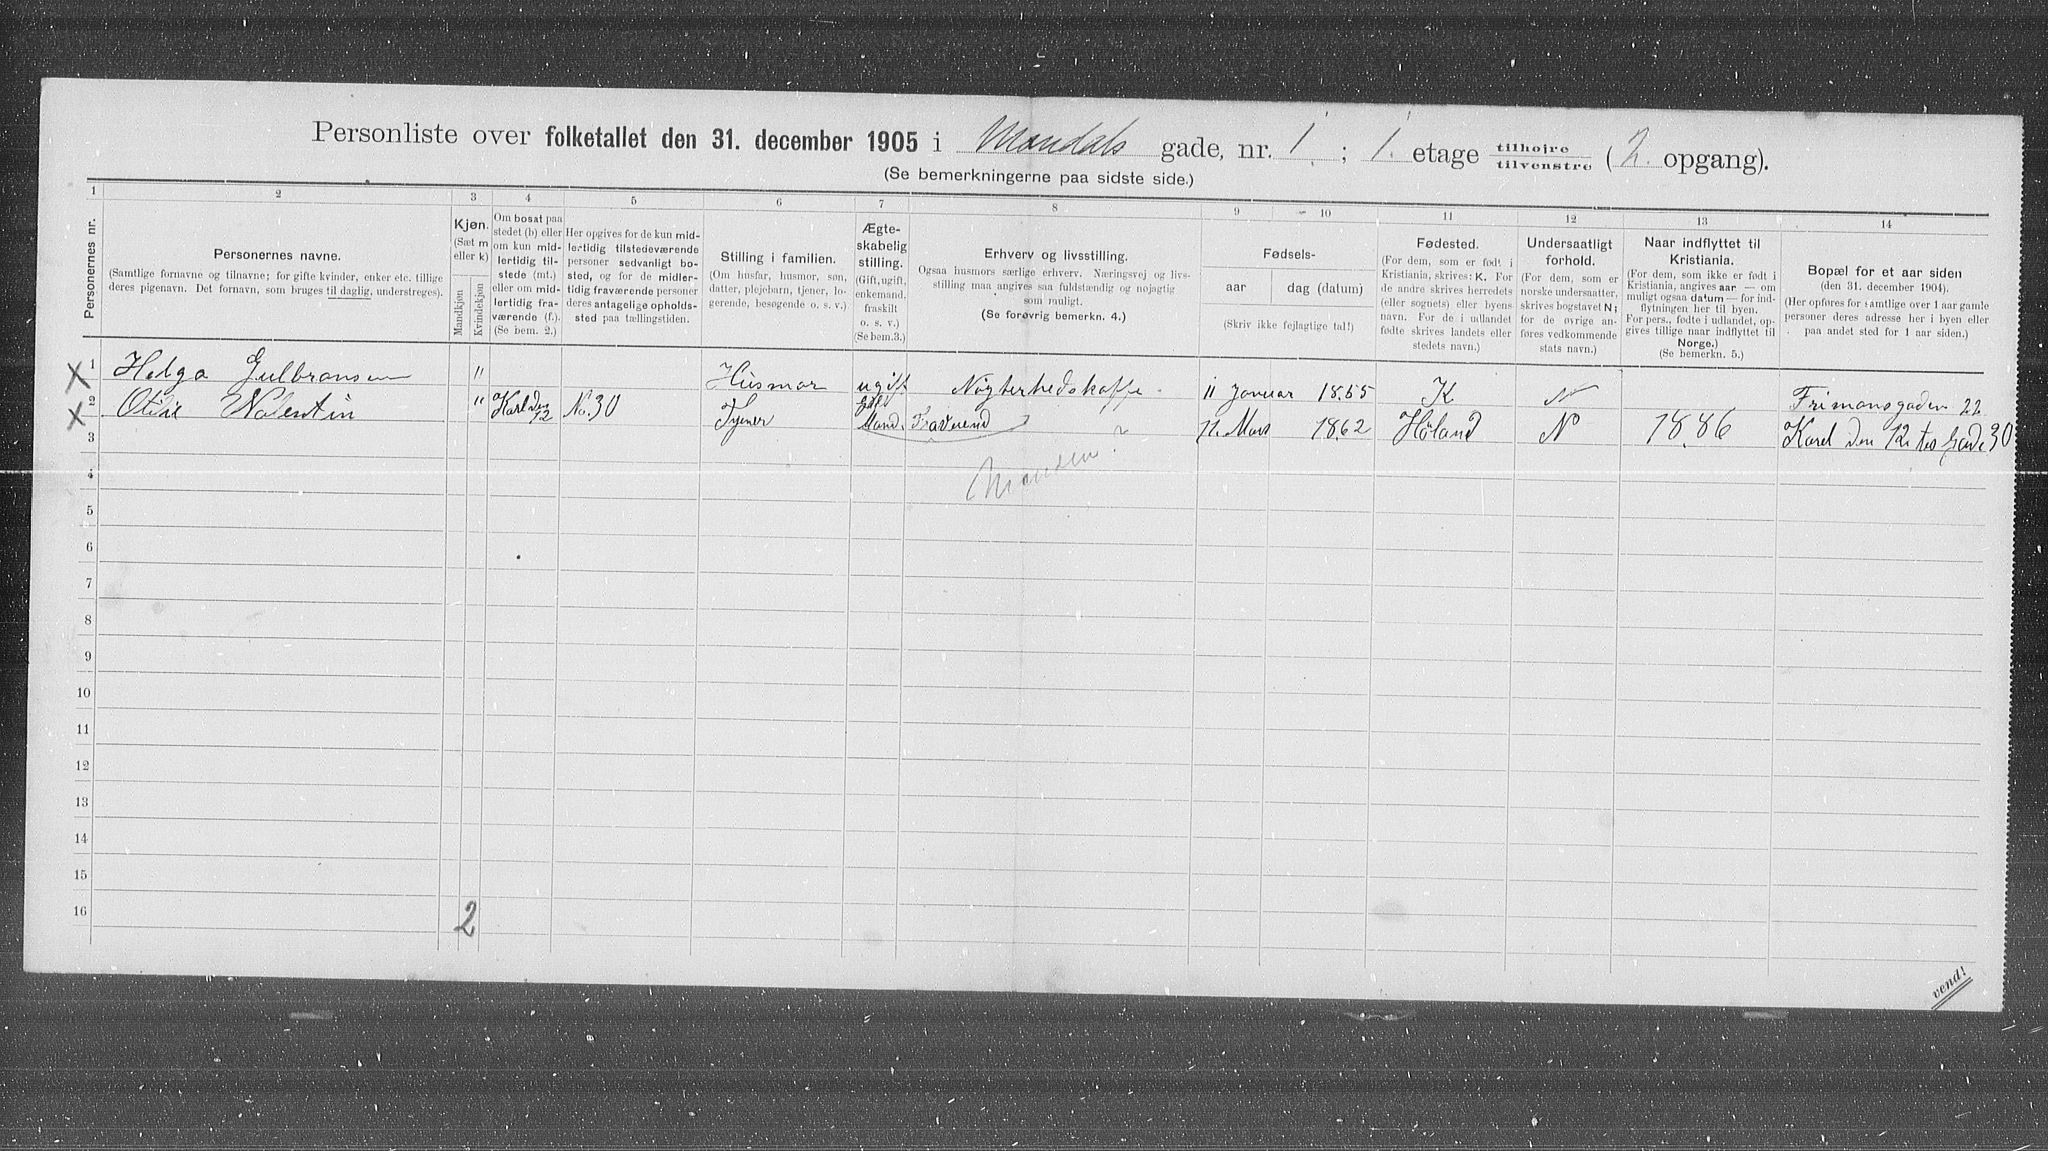 Personliste over folketallet den 31. december 1905 i Mandals gade, nr. 1. ; 1. etage tilhøjre tilvenstre (2. opgang).
(Se bemerkningerne paa sidste side.)
1 2 3 4 5 6 7 8 9 10 11 12 13 14
Personernes nr.
Personernes navne.
(Samtlige fornavne og tilnavne; for gifte kvinder, enker etc. tillige
deres pigenavn. Det fornavn, som bruges til daglig, understreges).
Kjøn.
(Sæt m
eller k)
Mandkjøn
Kvindekjøn
Om bosat paa
stedet (b) eller
om kun mid-
lertidig til-
stede (mt.)
eller om mid-
lertidig fra-
værende (f.).
(Se bem. 2.)
Her opgives for de kun mid-
lertidig tilstedeværende
personer sedvanligt bo-
sted, og for de midler-
tidig fraværende personer
deres antagelige opholds-
sted paa tællingstiden.
Stilling i familien.
(Om husfar, husmor, søn,
datter, plejebarn, tjener, lo-
gerende, besøgende o. s. v.)
Ægte-
skabelig
stilling.
(Gift, ugift,
enkemand,
fraskilt
o. s. v.)
(Se bem.3.)
Erhverv og livsstilling.
Ogsaa husmors særlige erhverv. Næringsvej og livs-
stilling maa angives saa fuldstændig og nøjagtig
som muligt.
(Se forøvrig bemerkn. 4.)
Fødsels-
aar
dag (datum)
(Skriv ikke fejlagtige tal!)
Fødested.
(For dem, som er født i
Kristiania, skrives: K. For
de andre skrives herredets
(eller sognets) eller byens
navn. For de i udlandet
fødte skrives landets eller
stedets navn.)
Undersaatligt
forhold.
(For dem, som er
norske undersaatter,
skrives bogstavet N;
for de øvrige an-
føres vedkommende
stats navn.)
Naar indflyttet til
Kristiania.
(For dem, som ikke er født i
Kristiania, angives aar — om
muligt ogsaa datum — for ind-
flytningen her til byen.
For pers., fødte i udlandet, op-
gives tillige naar indflyttet til
Norge.)
(Se bemerkn. 5.)
Bopæl for et aar siden
(den 31. december 1904).
(Her opføres for samtlige over 1 aar gamle
personer deres adresse her i byen eller
paa andet sted for 1 aar siden.)
X 1 Helga Gulbransen " Husmor ugift 11 Januar 1855 K N Frimansgaden 22
X 2 Otilie Valentin " Karl den 12 No. 30 Tjener Gift Mand. Fraverend 11. Mars 1862 Høland N 1886 Karl den 12 tes Gade 30
3
Manden ?
4
5
6
7
8
9
10
11
12
13
14
15
16
2
vend!